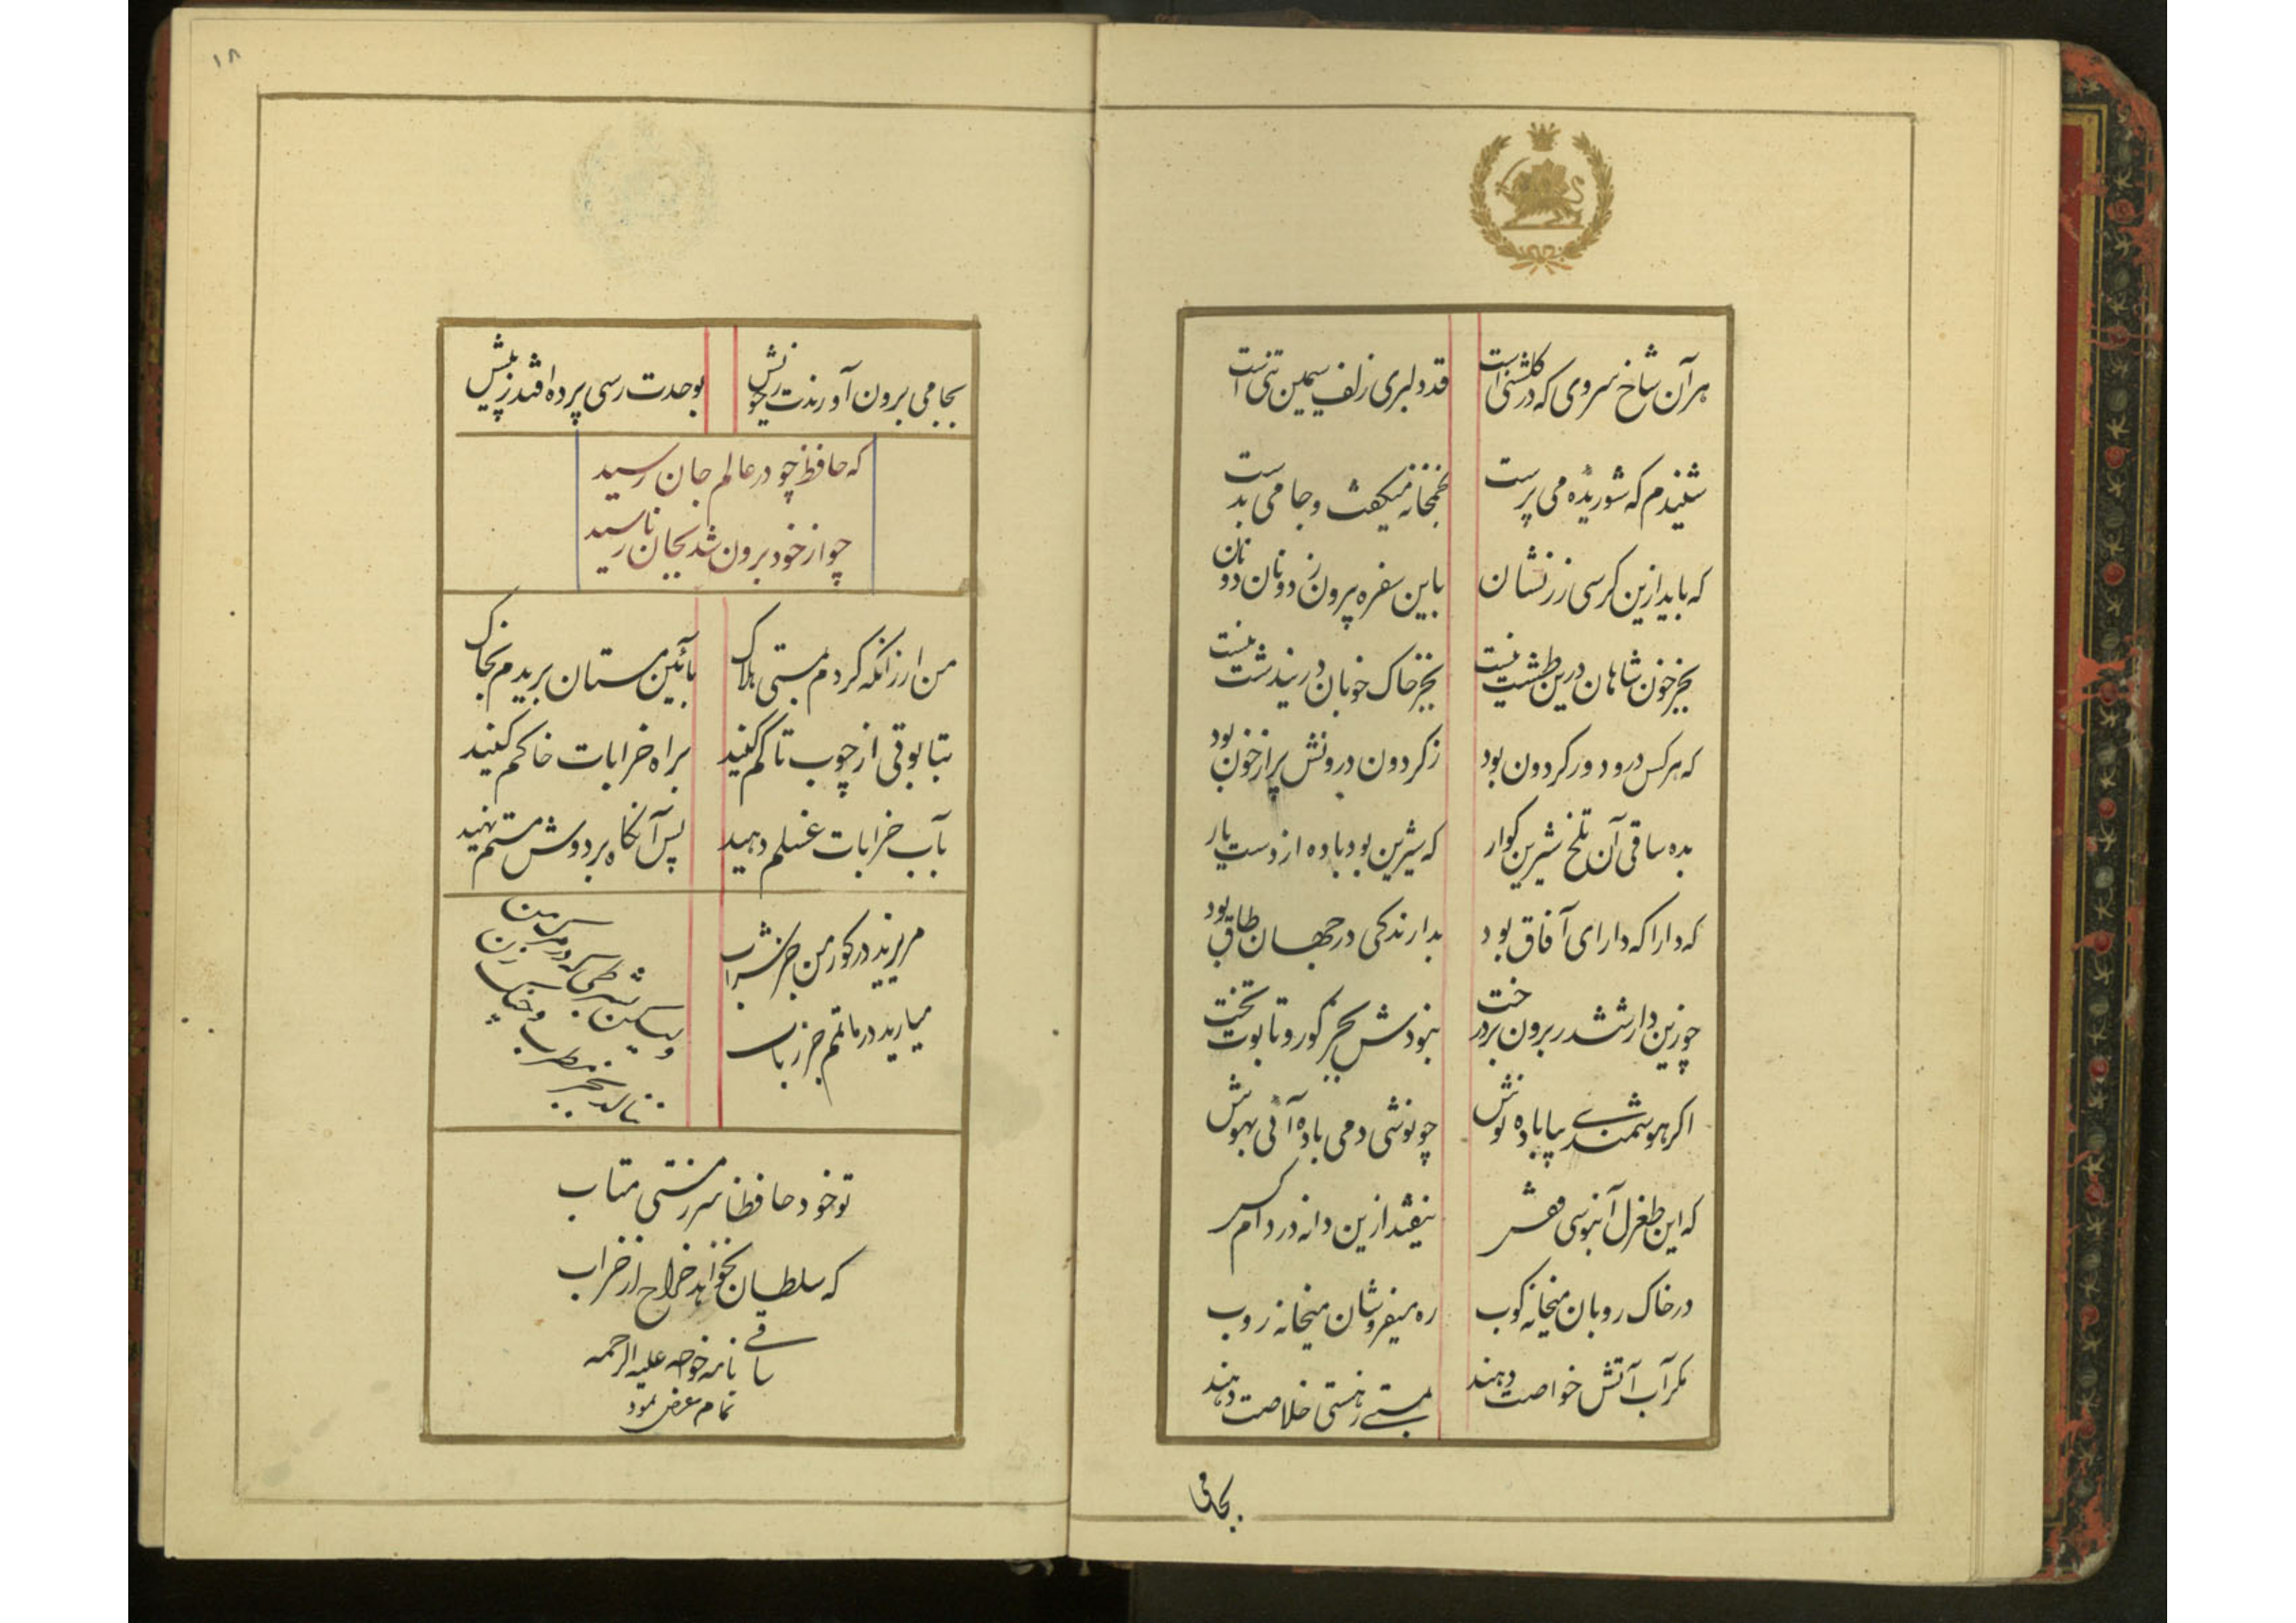 هر آن شاخ سروی که در گلشنی است
قد دلبری زلف سیمین تنی است
شنیدم که شوریدهٔ می پرست
بخمخانه میگفت و جامی بدست
که باید ازین کرسی زرنشان
باین سفره پرون ز دونان دونان
بجز خون شاهان درین طشت نیست
بجز خاک خوبان درین دشت نیست
که هر کس درو دور گردون بود
ز گردون درونش پر از خون بود
بده ساقی آن تلخ شیرین گوار
که شیرین بود باده از دست یار
که دارا که دارای آفاق بود
بدارندگی در جهان طاق بود
چو زین دار ششدر برون برد رخت
نبودش بجز گور و تابوت تخت
اگر هوشمندی بیا باده نوش
چو نوشی دمی باده آئی بهوش
که این طغرل آبنوسی قفس
نیفتد ازین دانه در دام کس
در خاک روبان میخانه کوب
ره میفروشان میخانه روب
مگر آب آتش خواصت دهند
بمستی ز هستی خلاصت دهند
بجامی
۱۸
بجامی برون آورندت ز خویش
بوحدت رسی پرده افتد ز پیش
که حافظ چو در عالم جان رسید
چو از خود برون شد بجانان رسید
من ار زانکه گردم بمستی هلاک
بآئین مستان بریدم بخاک
بتابوتی از چوب تاکم کنید
براه خرابات خاکم کنید
بآب خرابات غسلم دهید
پس آنگاه بر دوش مستم نهید
مریزید در گور من جز شراب
میارید در ماتمم جز رباب
ولیکن بشرطی که در مرگ من
ننالد بجز مطرب و چنگ زن
تو خود حافظا سر ز مستی متاب
که سلطان نخواهد خراج از خراب
ساقی نامه خواجه علیه الرحمه
تمام عرض نمود